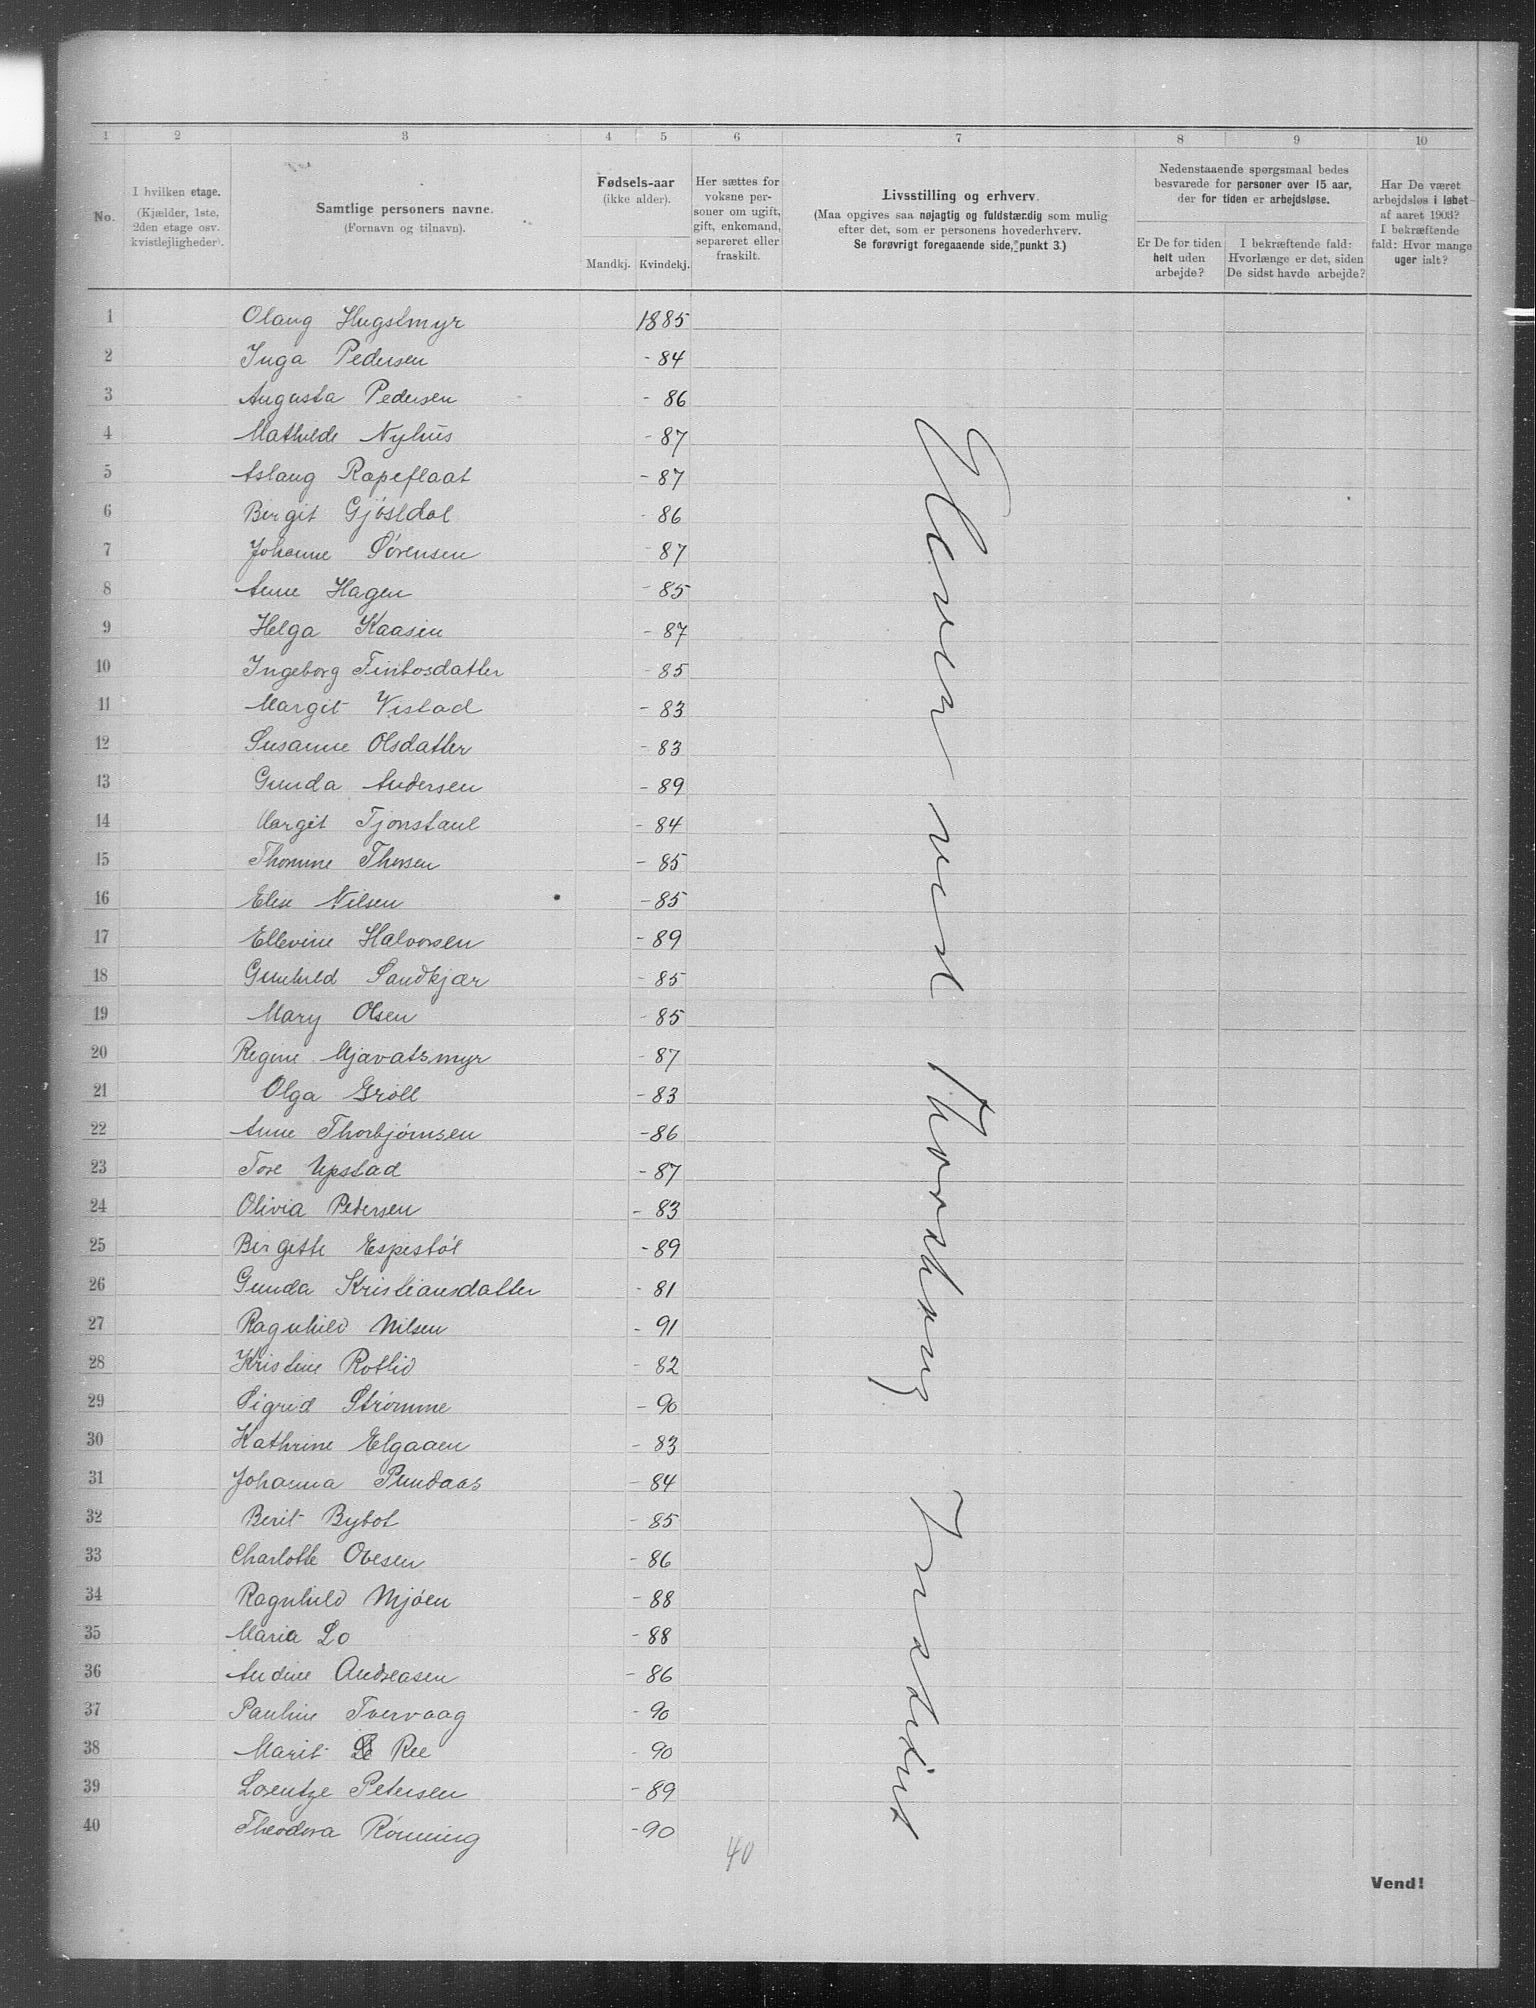 1 2 3 4 5 6 7 8 9 10
No.
I hvilken etage.
(Kjælder, 1ste,
2den etage osv.
kvistlejligheder).
Samtlige personers navne.
(Fornavn og tilnavn).
Fødsels-aar
(ikke alder).
Mandkj. Kvindekj.
Her sættes for
voksne per-
soner om ugift,
gift, enkemand,
separeret eller
fraskilt.
Livsstilling og erhverv.
(Maa opgives saa nøjagtig og fuldstændig som mulig
efter det, som er personens hovederhverv.
Se forøvrigt foregaaende side, punkt 3.)
Nedenstaaende spørgsmaal bedes
besvarede for personer over 15 aar,
der for tiden er arbejdsløse.
Er De for tiden
helt uden
arbejde?
I bekræftende fald:
Hvorlænge er det, siden
De sidst havde arbejde?
Har De været
arbejdsløs i løbet
af aaret 1903?
I bekræftende
fald: Hvor mange
uger ialt?
1 Olaug Hugslmyr 1885
2 Inga Pedersen - 84
3 Augusta Pedersen - 86
4 Mathilde Nyhus - 87
5 Aslaug Rapeflaat - 87
6 Birgit Gjøsldal - 86
7 Johanne Sørensen - 87
8 Anne Hagen - 85
9 Helga Kaasen - 87
10 Ingeborg Fintosdatter - 85
11 Margit Vistad - 83
12 Susanne Olsdatter - 83
13 Gunda Andersen - 89
14 Margit Tjonstaul - 84
15 Thomine Thorsen - 85
16 Elise Nilsen - 85
17 Ellevine Halvorsen - 89
18 Gunhild Sandkjær - 85
19 Mary Olsen - 85
20 Regine Mjavatsmyr - 87
21 Olga Grøll - 83
22 Anne Thorbjørnsen - 86
23 Tore Upstad - 87
24 Olivia Petersen - 83
25 Birgette Espestøl - 89
26 Gunda Kristiansdatter - 81
27 Ragnhild Nilsen - 91
28 Kristine Rotlid - 82
29 Sigrid Strømme - 90
30 Kathrine Elgaaen - 83
31 Johanna Pundaas - 84
32 Berit Bybot - 85
33 Charlotte Ovesen - 86
34 Ragnhild Mjøen - 88
35 Maria Lo - 88
36 Andine Andreasen - 86
37 Pauline Tvervaag - 90
38 Marit Ree - 90
39 Lorentze Petersen - 89
40 Theodora Rønning - 90
40
Elever ved Hørselsens Institut
Vend!